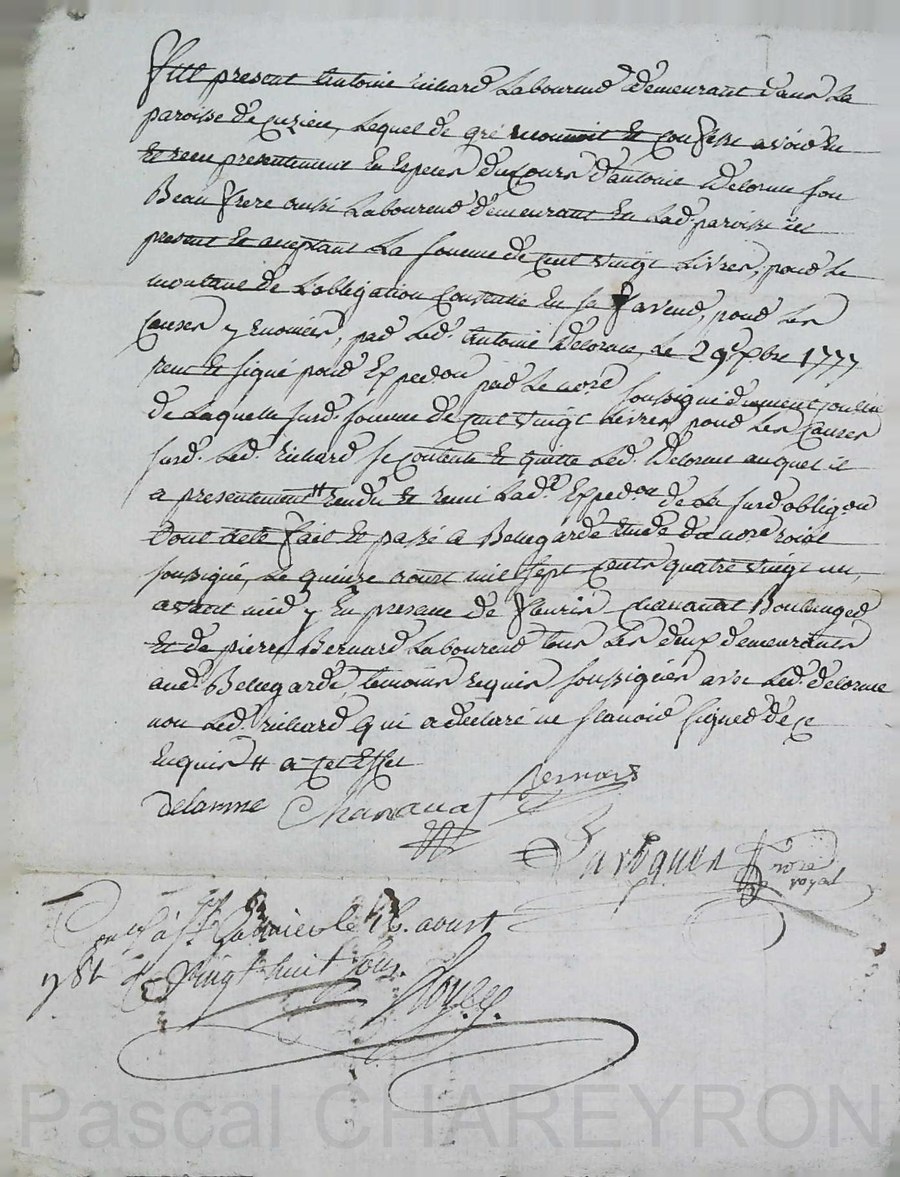 Fut present Antoine richard Laboureur demeurant dans la
paroisse de Cuzieu, lequel de gré reconnoit et confesse avoir eu
et receu presentement en Especes du Cours d'antoine Delorme son
Beau frere aussi Laboureur demeurant en Lad. paroisse ici
present et aceptant La somme de Cent vingt Livres, pour le
montant de L'obligation Consentie en sa faveur, pour les
Causes y enoncées, par Led. Antoine Delorme, le 29e xbre 1777
receu et signé pour Expedon par Le nore soussigné duement
de Laquelle surd. somme de Cent vingt Livres pour les Causes
surd. Led. richard se contente et quitte Led. Delorme auquel il
a presentement rendu et remi Lad. Expedon de La surd obligon
Dont acte fait et passé a Bellegarde Etude du nore roial
soussigné, Le quinze aoust mil sept Cents quatre vingt un,
avant midy En presence de fleuris Chananat Boulanger
et de pierre Bernard Laboureur tous les deux demeurants
aud. Bellegarde, temoins requis soussignés avec Led. delorme
non Led. richard qui a declaré ne scavoir signer de ce
Enquis a Cet Effet
delorme Chananat Bernard
nore royal
a St Galmier le 16. aoust
1781 vingt huit sous.